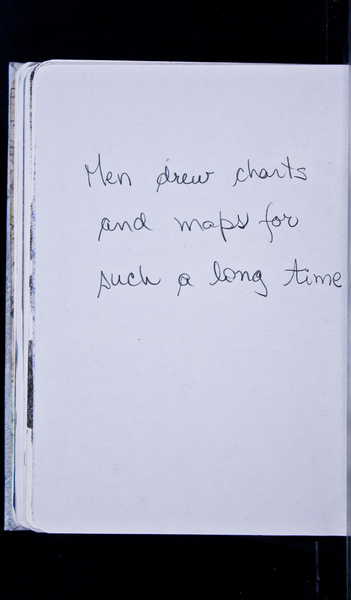 Men drew charts
and maps for
such a long time